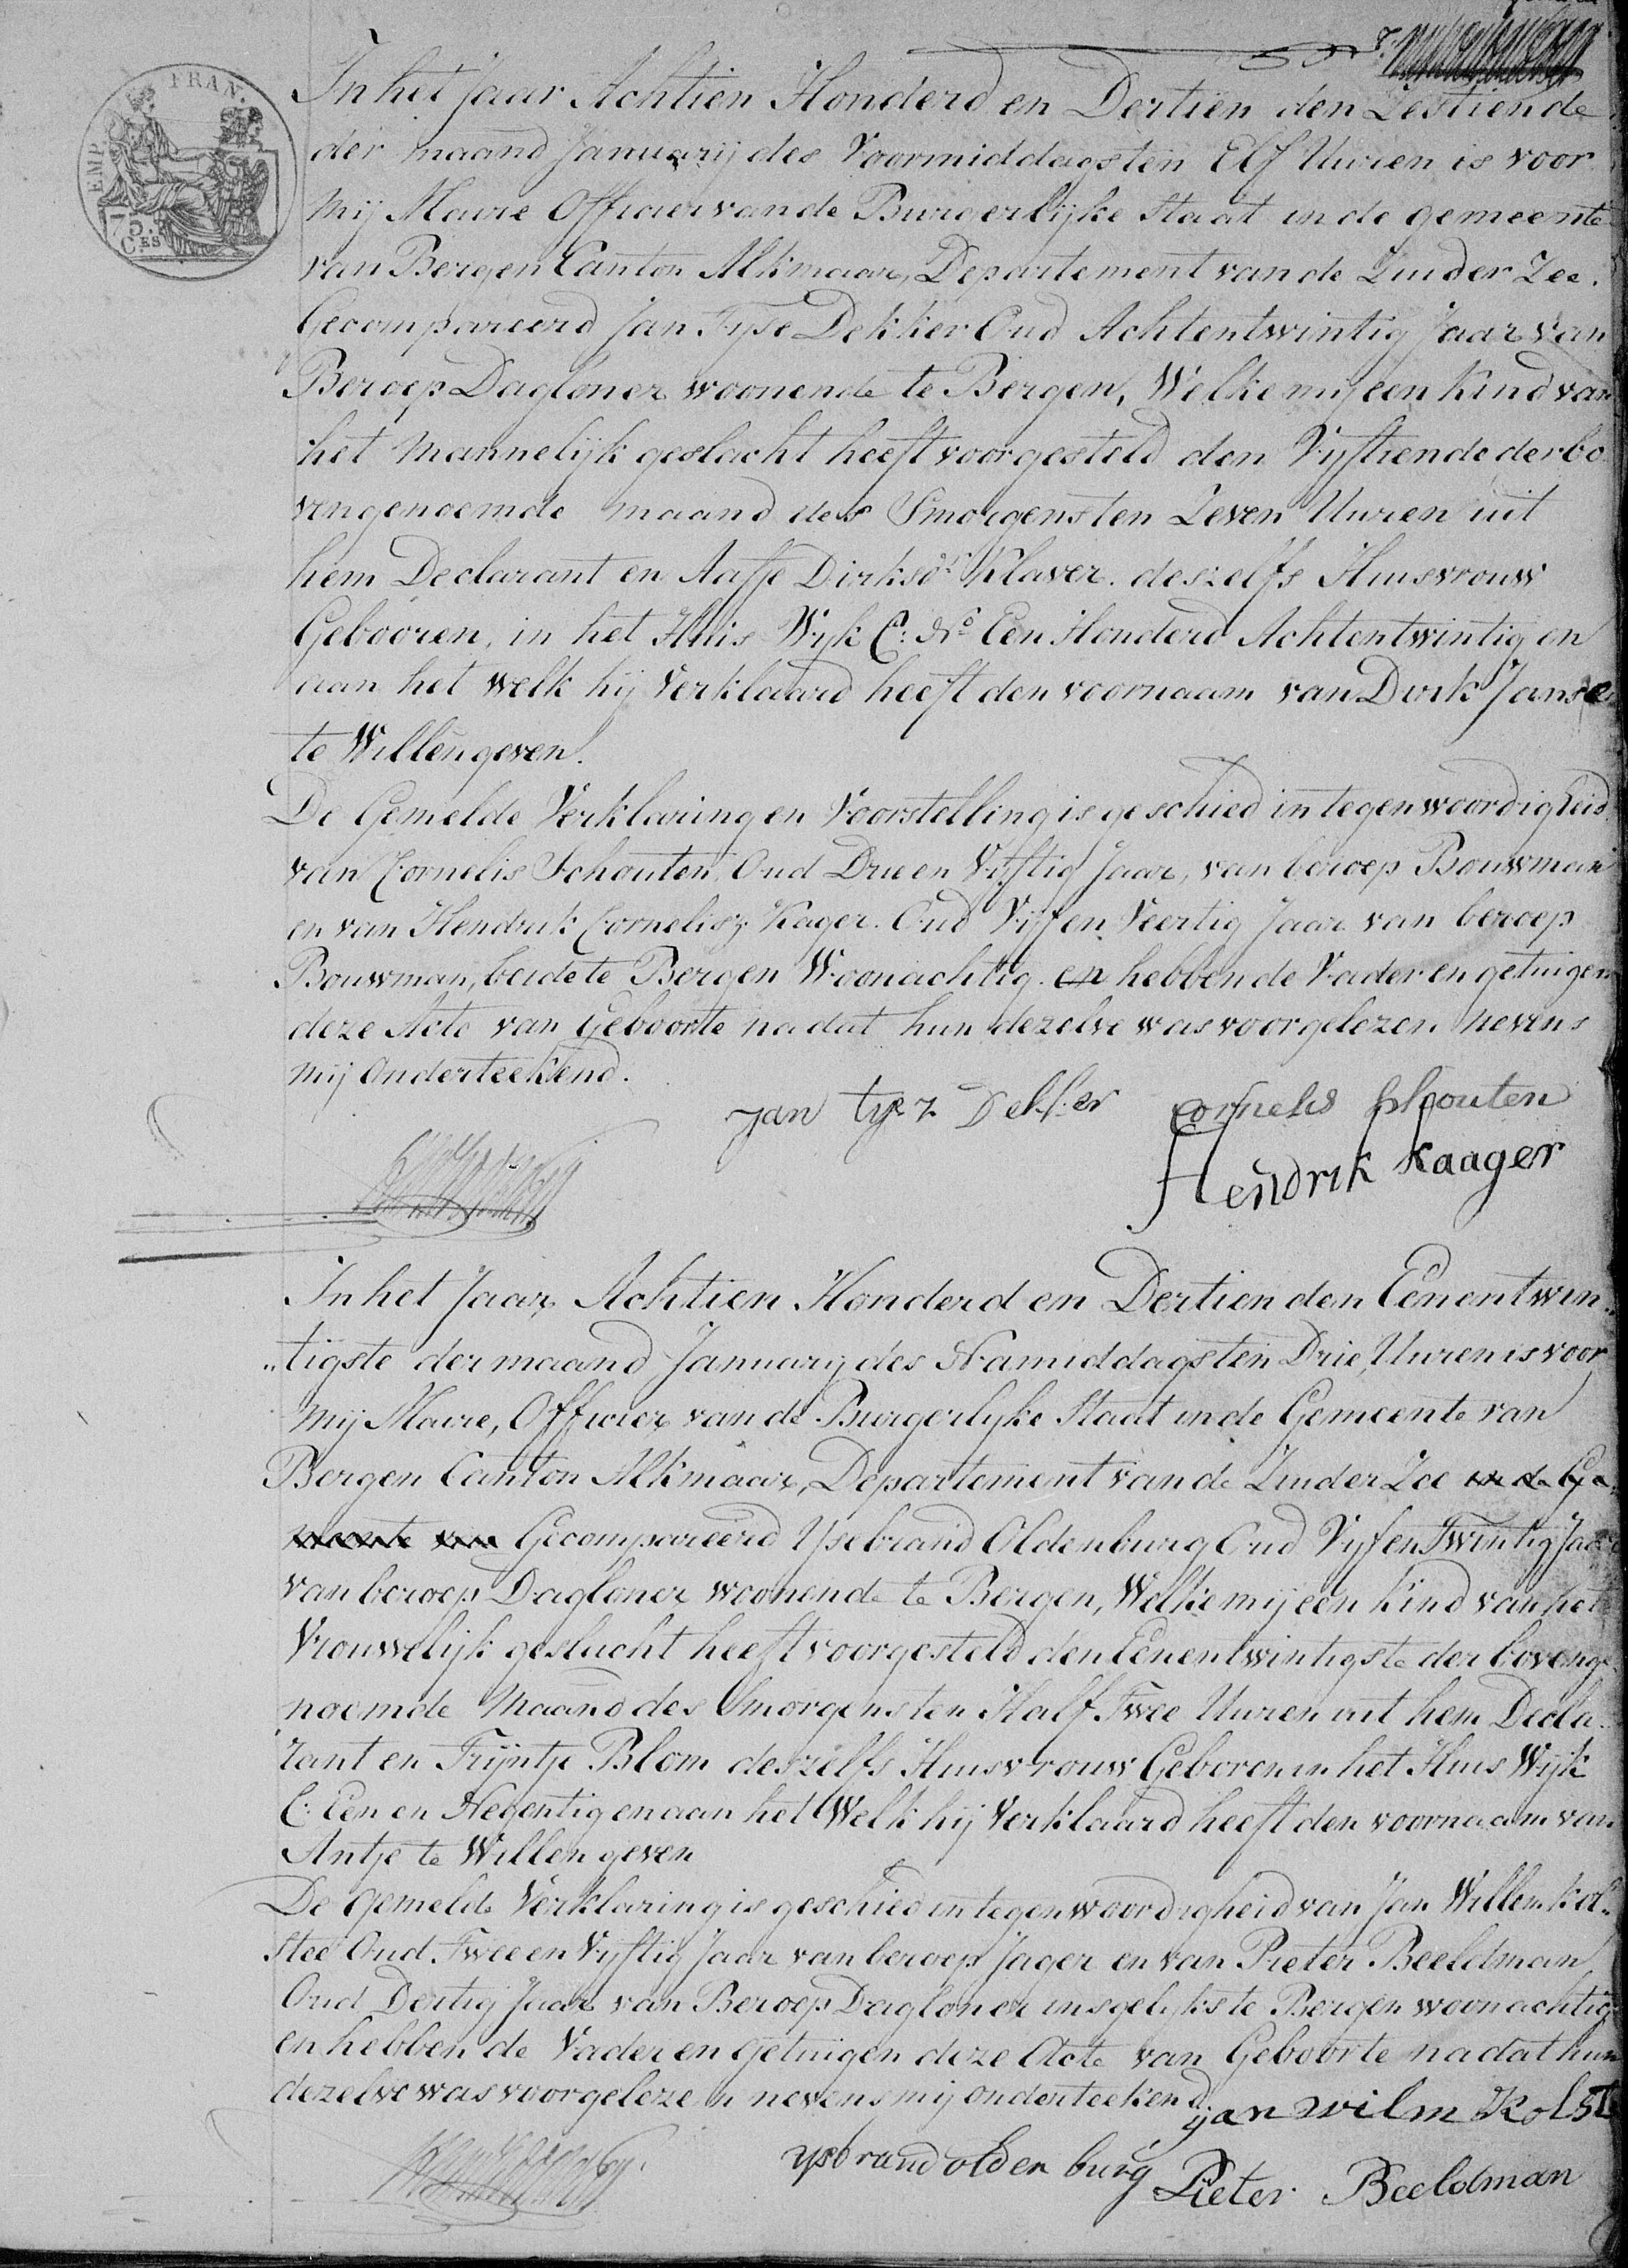 EMP. FRAN.
75.
CES
In het Jaar Achtien Honderd en Dertien den Zestiende
der maand Januarij des Voormiddags ten Elf Uuren is voor
Mij Maire Officier van de Burgerlijke Staat in de gemeente
van Bergen Canton Alkmaar, Departement van de Zuider Zee.
Gecompareerd Jan Tijse Dekker Oud Achtentwintig Jaar van
Beroep Dagloner woonende te Bergen, Welke mij een Kind van
het Mannelijk geslacht heeft voorgesteld den Vijftiende der bo
vengenoemde maand des Smorgens ten Zeven Uuren uit
hem Declarant en Aafje Dirksdr Klaver. deszelfs Huisvrouw
Gebooren, in het Huis Wijk C: No Een Honderd Achtentwintig en
aan het welk hij Verklaard heeft den voornaam van Dirk Janse
te Willen geven.
De Gemelde Verklaring en Voorstelling is geschied in tegenwoordigheid
van Cornelis Schouten, Oud Drie en Vijftig Jaar, van beroep Bouwman
en van Hendrik Cornelisz Kager. Oud Vijf en Veertig Jaar van beroep
Bouwman, beide te Bergen Woonachtig. en hebben de Vader en getuigen
deze Acte van Geboorte na dat hun dezelve was voorgelezen nevens
Mij Onderteekend.
Jan tijsz Dekker Cornelis Schouten
Hendrik Kaager
In het Jaar Achtien Honderd en Dertien den Eenentwin„
„tigste der maand Januarij des Namiddags ten Drie Uuren is voor
Mij Maire, Officier van de Burgerlijke Staat in de Gemeente van
Bergen Canton Alkmaar, Departement van de Zuider Zee in de Ge
meente van Gecompareerd IJsebrand Oldenburg Oud Vijf en Twintig Jaar
van beroep Dagloner woonende te Bergen, Welke mij een kind van het
Vrouwelijk geslacht heeft voorgesteld den Eenentwintigste der bovenge
noemde Maand des Smorgens ten Half Twee Uuren uit hem Decla
rant en Trijntje Blom deszelfs Huisvrouw Geboren in het Huis Wijk
C: Een en Negentig en aan het Welk hij Verklaard heeft den voornaam van
Antje te Willen geven
De Gemelde Verklaring is geschied in tegenwoordigheid van Jan Willem Kol„
stee Oud Twee en Vijftig Jaar van beroep Jager en van Pieter Beeldman
Oud Dertig Jaar van Beroep Dagloner insgelijks te Bergen woonachtig
en hebben de Vader en getuigen deze Acte van Geboorte na dat hun
dezelve was voorgelezen nevens mij onderteekend
jan wilm Kolste
ysbrand olden burg Pieter Beeldman